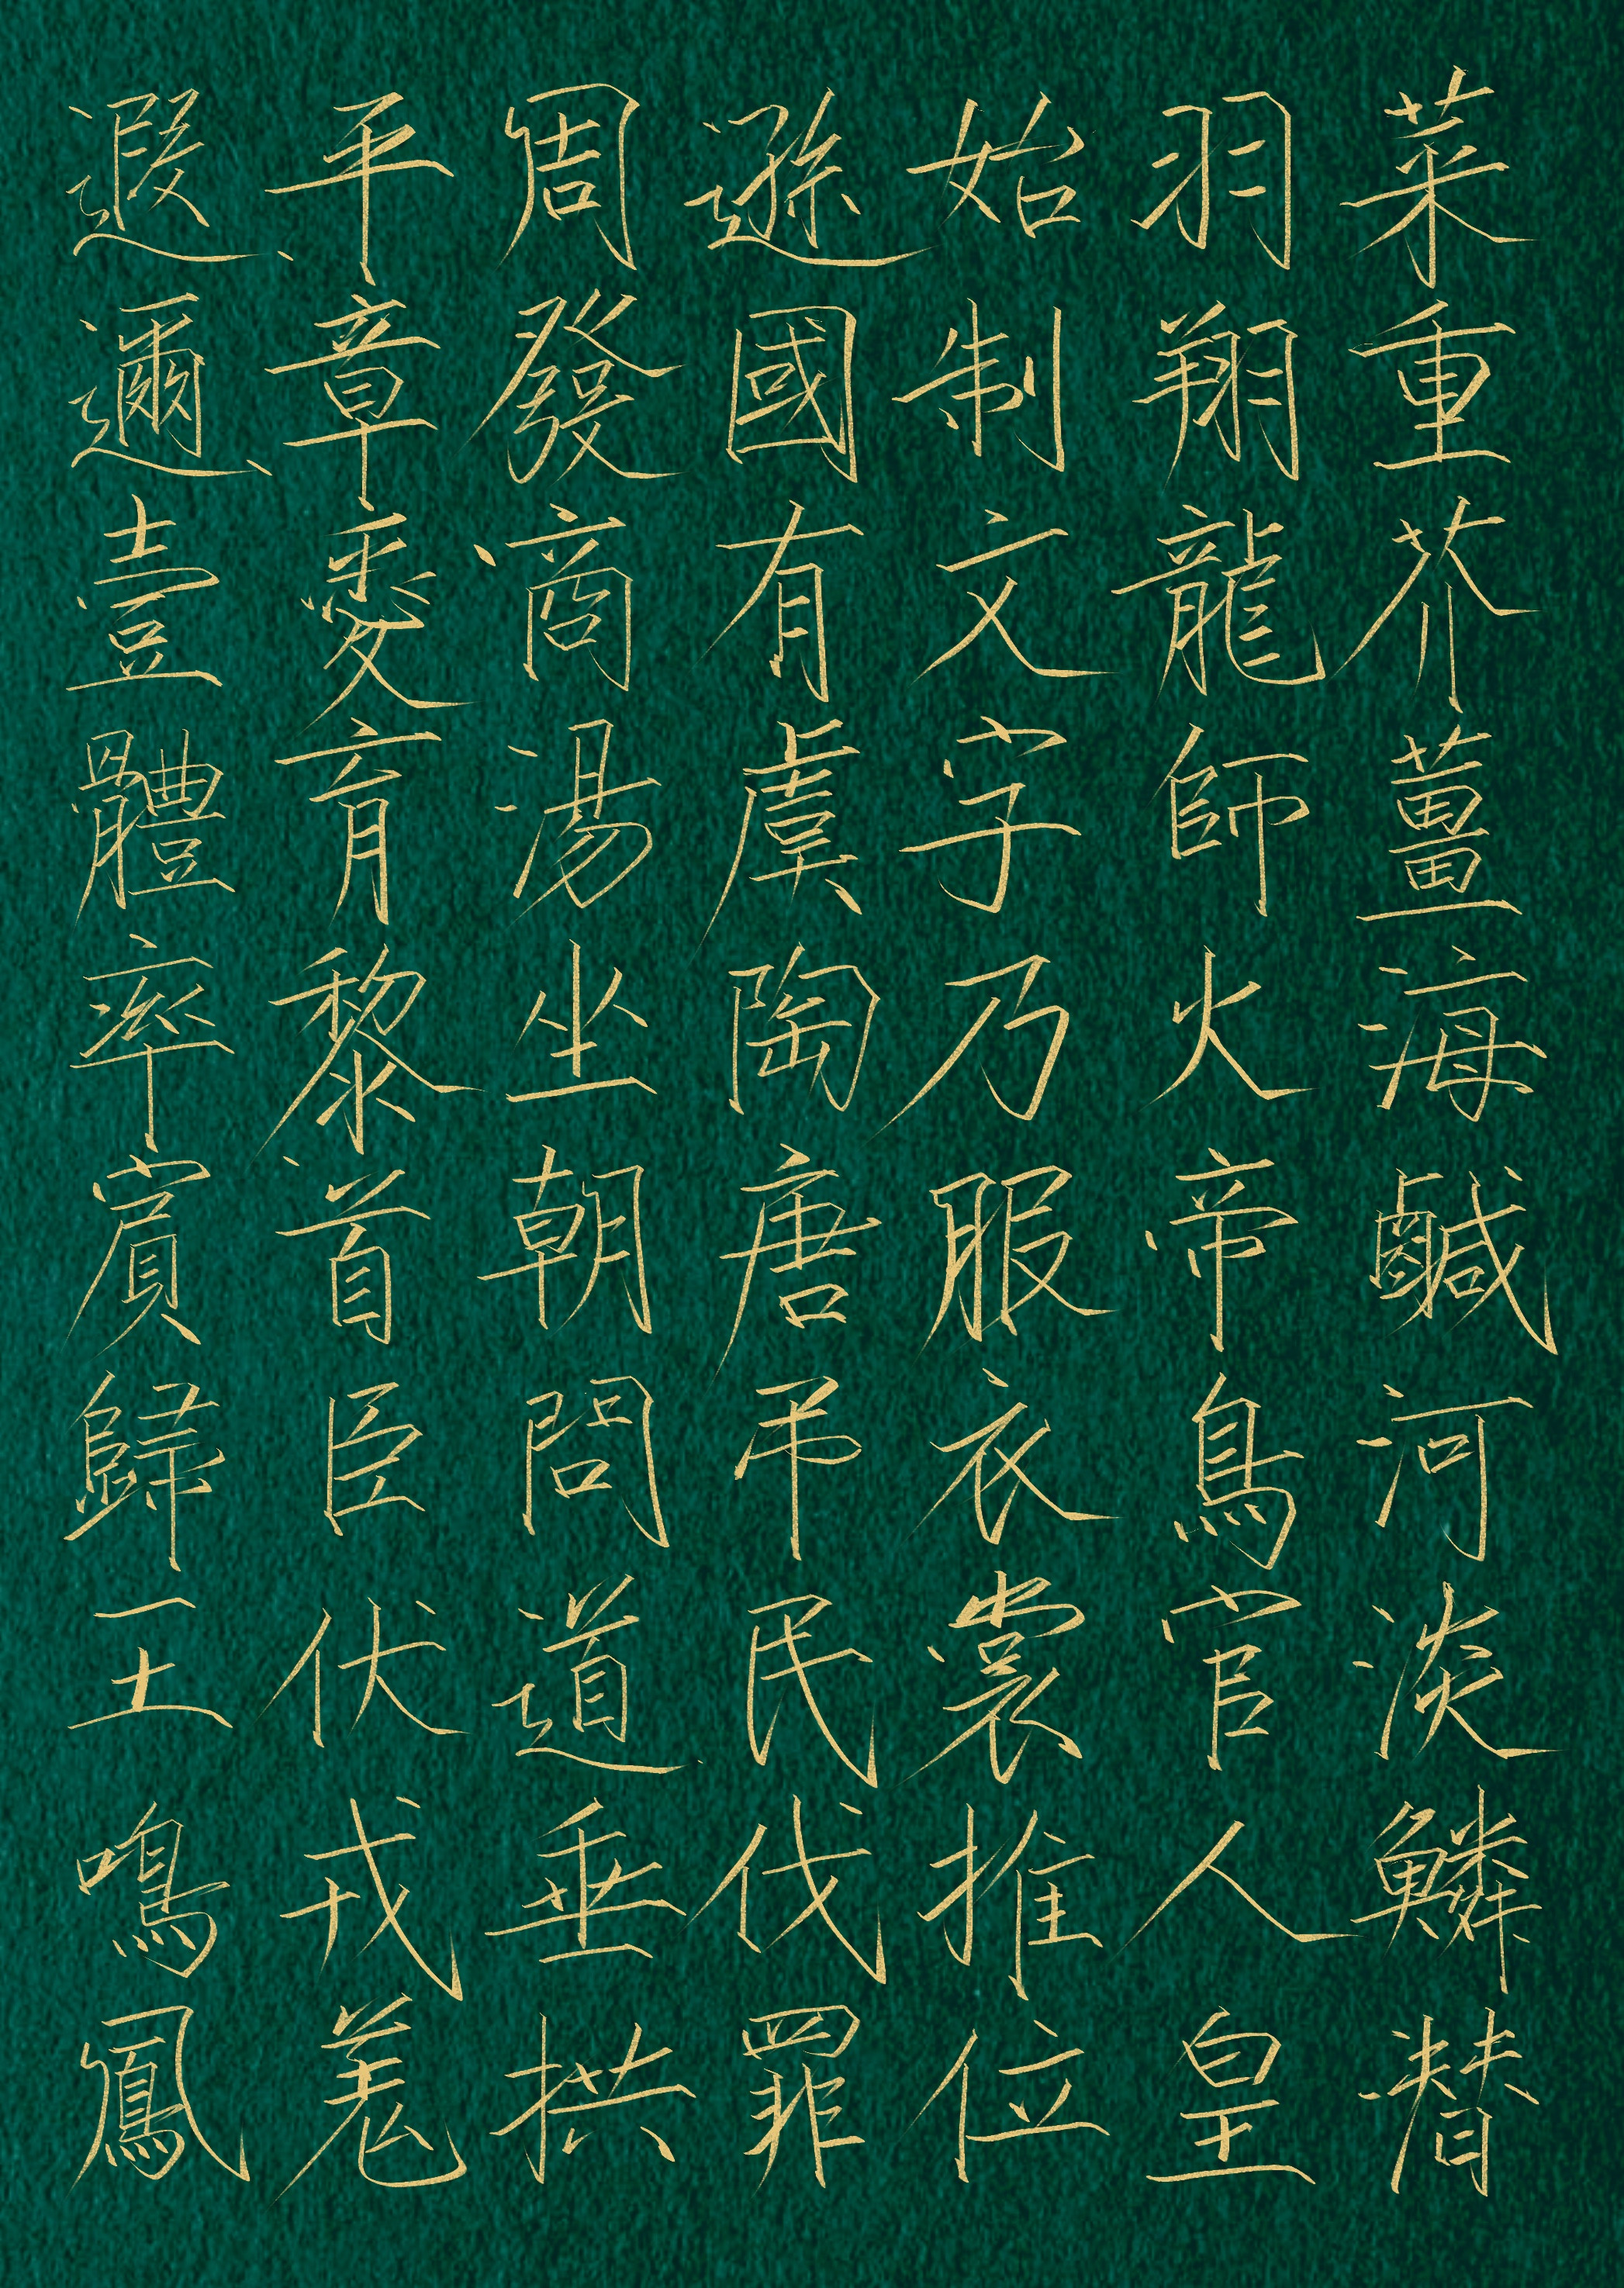 菜重芥薑海鹹河淡鱗潛
羽翔龍師火帝鳥官人皇
始制文字乃服衣裳推位
遜國有虞陶唐吊民伐罪
周發商湯坐朝問道垂拱
平章愛育黎首臣伏戎羌
遐邇壹體率賓歸王鳴鳳